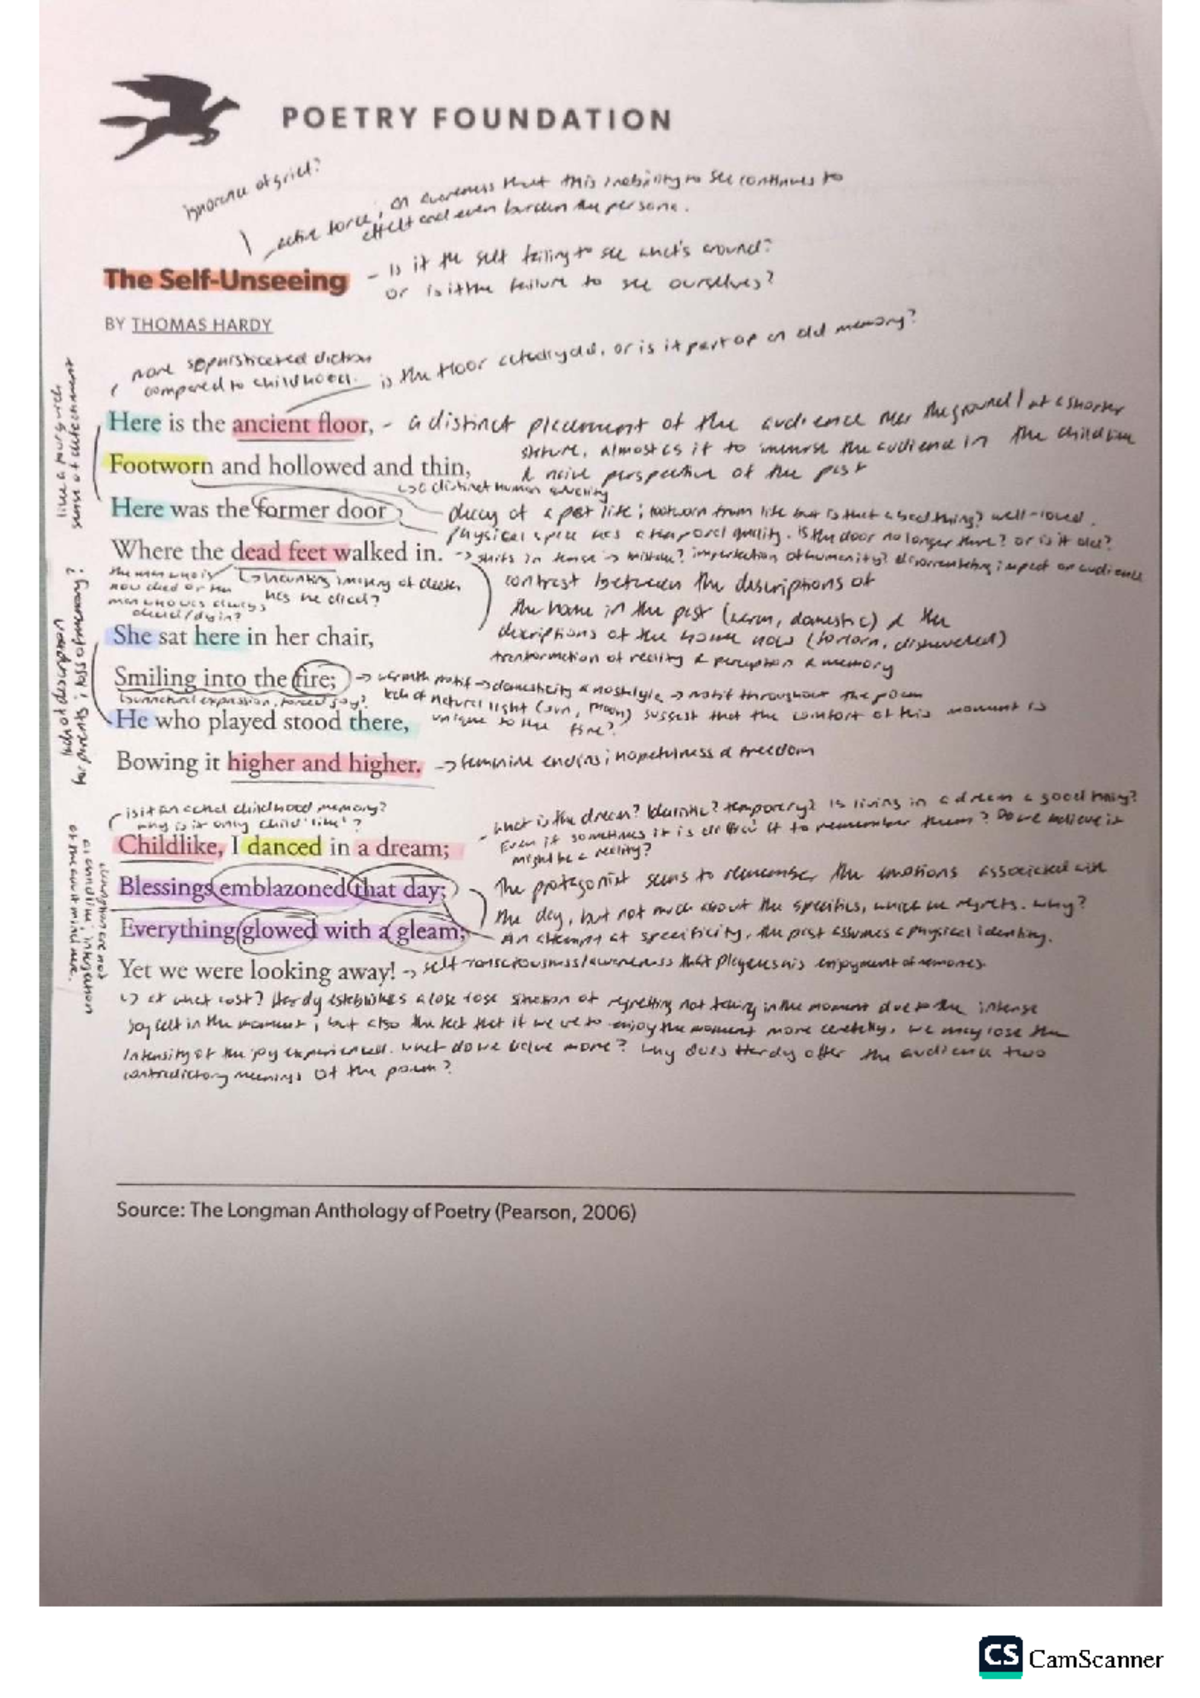 POETRY FOUNDATION
ignorance of grief?
active force, an awareness that this inability to see continues to
effect and even burden the persona.
The Self-Unseeing
- Is it the self failing to see what's around?
or is it the failure to see ourselves?
BY THOMAS HARDY
more sophisticated diction
compared to childhood.
is the floor actually old, or is it part of an old memory?
like a tour guide
sense of detachment
Here is the ancient floor,
- a distinct placement of the audience near the ground / at a shorter
stature, almost as if to immerse the audience in the childlike
& naive perspective of the past
Footworn and hollowed and thin,
↳ a distinct human
Here was the former door
decay of a past life; footworn from life but is that a bad thing? well-loved.
physical space has a temporal quality. Is the door no longer there? or is it old?
Where the dead feet walked in.
-> shifts in tense -> mistake? imperfection of humanity? disorientating impact on audience
the man who is
now died or the
man who was always
dead/dying?
↳ haunting imagery of death,
has he died?
contrast between the descriptions of
the home in the past (warm, domestic) & the
descriptions of the home now (forlorn, dishevelled)
transformation of reality & perception & memory
lack of description
for parents; loss of memory?
She sat here in her chair,
Smiling into the fire;
-> warmth motif -> domesticity & nostalgia -> motif throughout the poem
lack of natural light (sun, moon) suggest that the comfort of this moment is
unique to the fire?
(unnatural expression, forced joy?
He who played stood there,
Bowing it higher and higher.
-> feminine ending; hopefulness & freedom
is it an actual childhood memory?
why is it only child 'like'?
Childlike, I danced in a dream;
- what is the dream? Identity? temporary? Is living in a dream a good thing?
Even if sometimes it is difficult to remember them? Do we believe it
might be a reality?
Blessings emblazoned that day;
The protagonist seems to remember the emotions associated with
the day, but not much about the specifics, which he regrets. Why?
Everything glowed with a gleam;
An attempt at specificity, the past assumes a physical identity.
Yet we were looking away!
-> self-consciousness/awareness that plagues his enjoyment of memories
↳ at what cost? Hardy establishes a lose lose situation of regretting not taking in the moment due to the intense
joy felt in the moment, but also the fact that if we were to enjoy the moment more carefully, we may lose the
intensity of the joy experienced. what do we value more? Why does Hardy offer the audience two
contradictory meanings of the poem?
Source: The Longman Anthology of Poetry (Pearson, 2006)
CS CamScanner